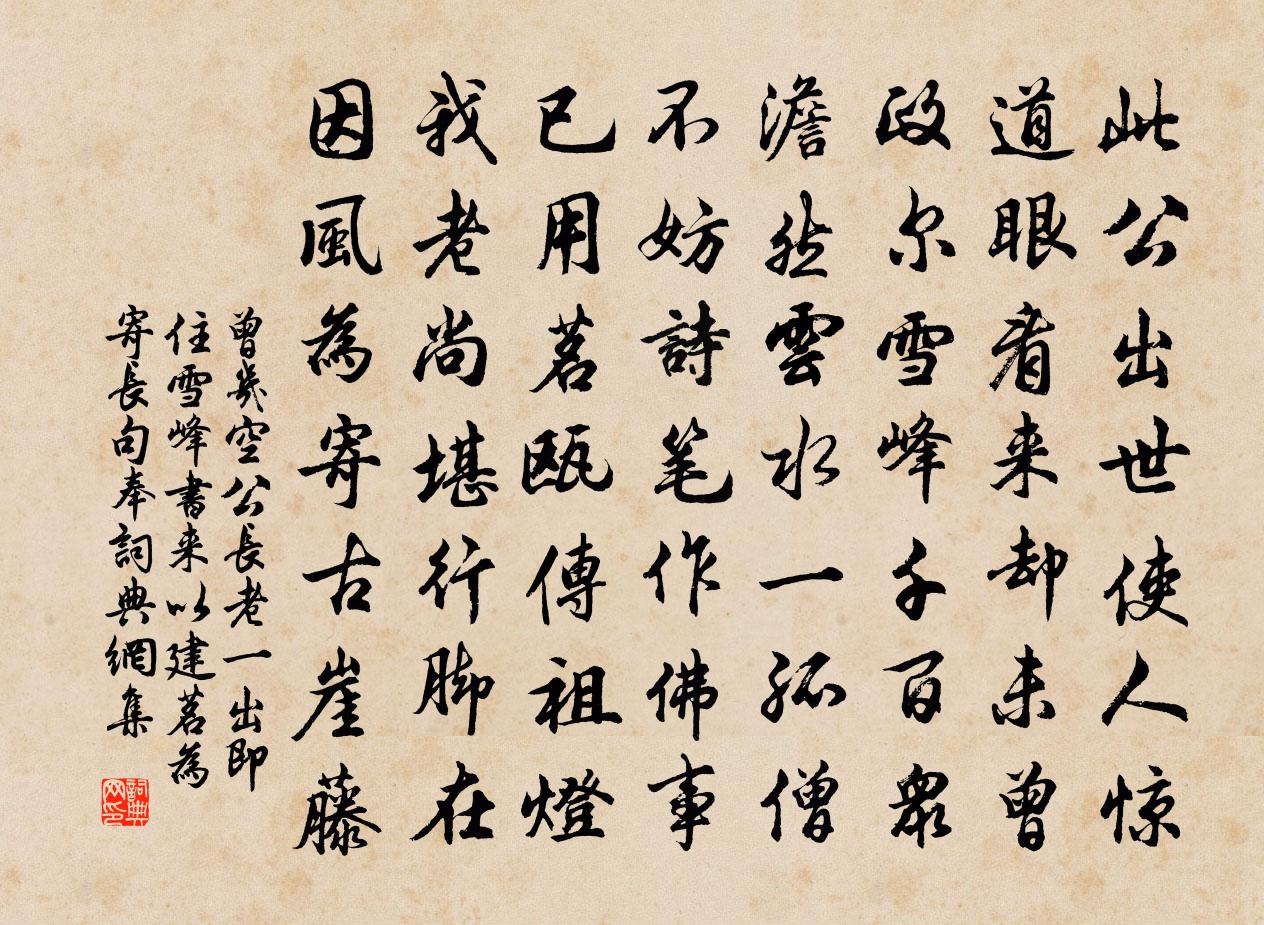 此公出世使人惊
道眼看来却未曾
政尔雪峰千百众
澹然雲水一孤僧
不妨詩笔作佛事
已用茗甌傳祖燈
我老尚堪行脚在
因風為寄古崖藤
曾幾空公長老一出即
住雪峰書来以建茗為
寄長句奉詞典網集
詞典
网印